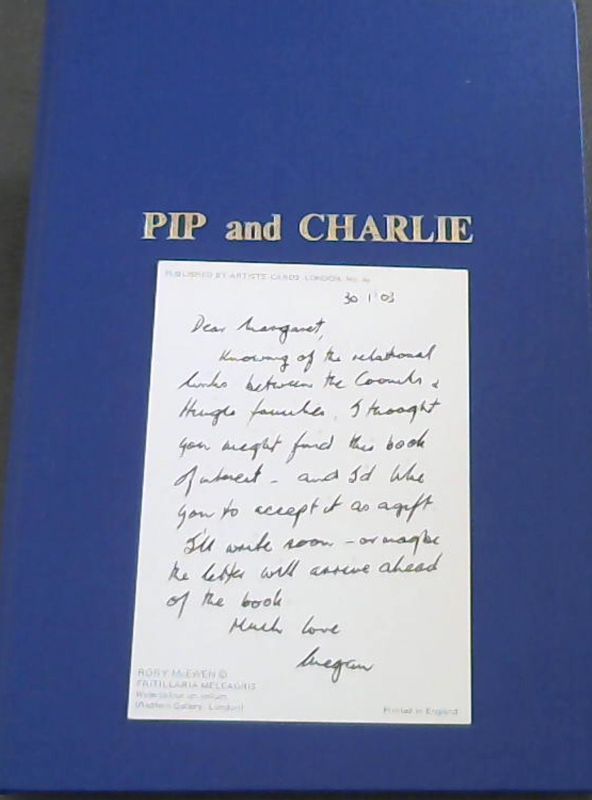 PIP and CHARLIE
PUBLISHED BY ARTISTS CARDS LONDON. No.
30 1 '03
Dear Margaret,
Knowing of the relational
links between the Coombs &
families, I thought
you might find this book
of interest - and I'd like
you to accept it as a gift
I'll write soon - or maybe
the letter will arrive ahead
of the book
Much love
Megan
RORY McEWEN ©
FRITILLARIA MELEAGRIS
Watercolour on vellum
(Redfern Gallery, London)
Printed in England